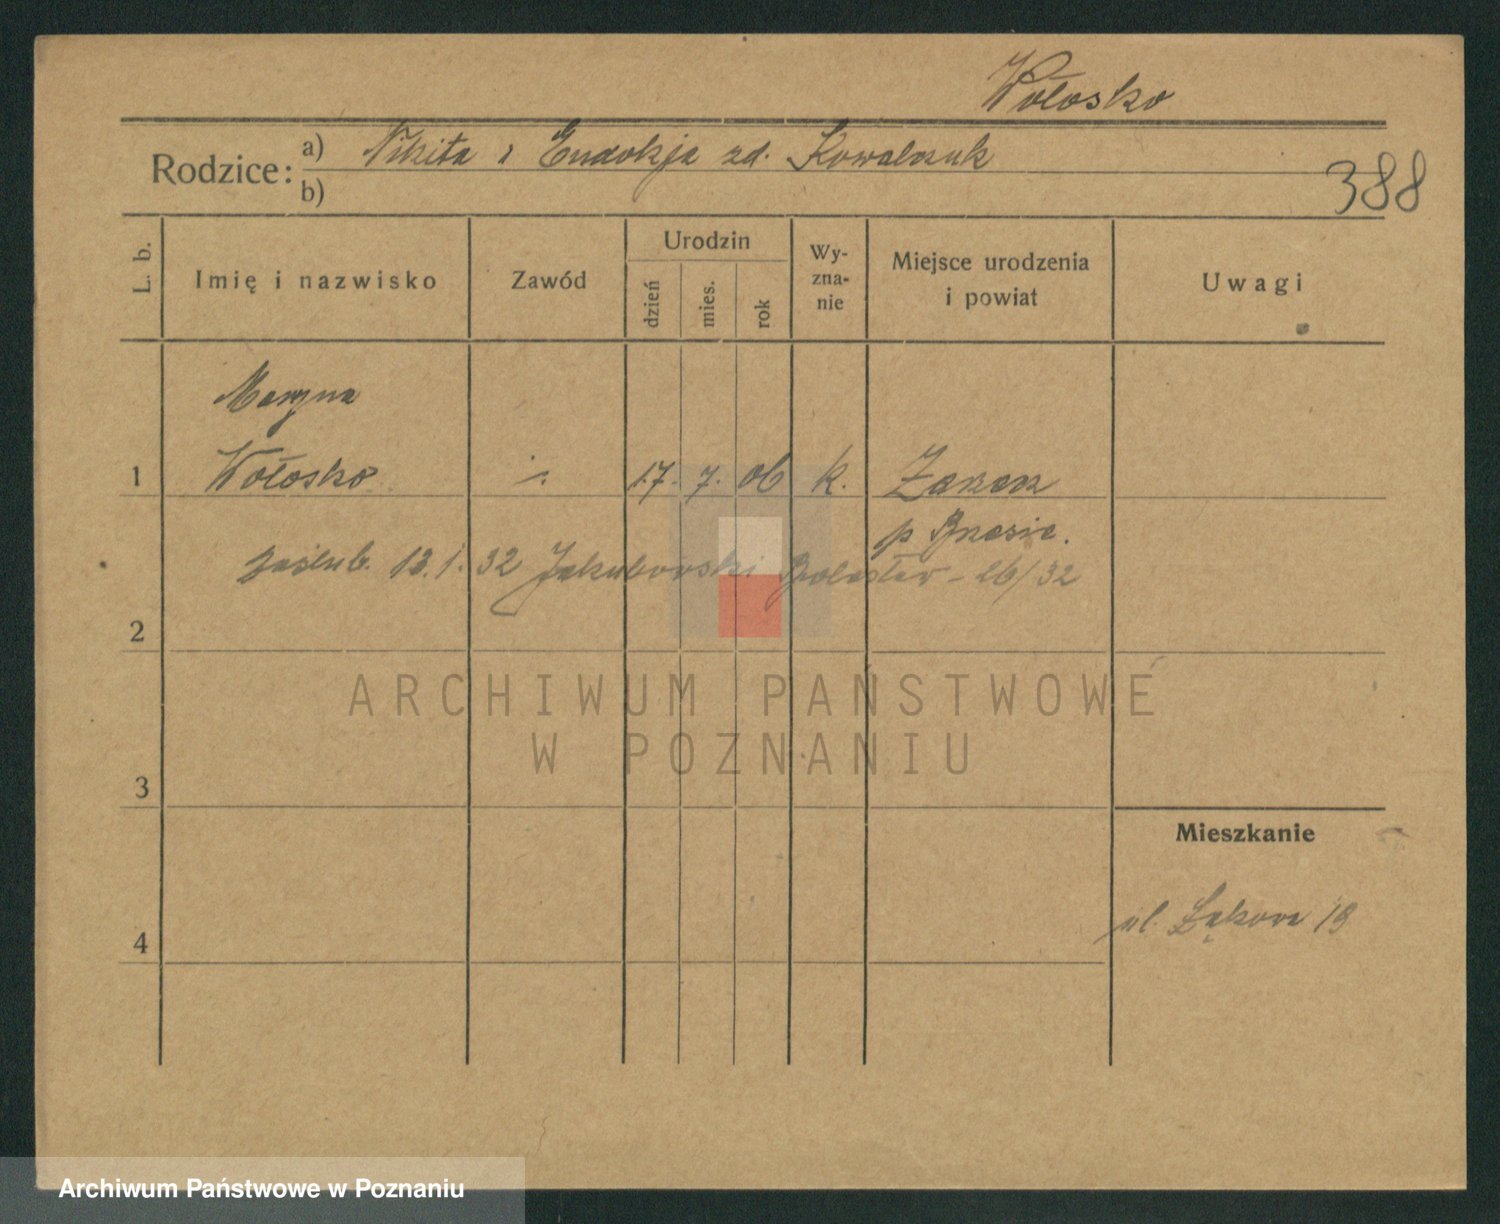 Wołosko
Rodzice: a) Nikita i Eudokja zd. Kowalczuk
b)
388
L. b.
Imię i nazwisko
Zawód
Urodzin
dzień
mies.
rok
Wy-
zna-
nie
Miejsce urodzenia
i powiat
Uwagi
Maryna
1 Wołosko 17. 7. 06 k.
p
zaślub. 13.1.32 Jakubowski Bolesław - 26/32
2
ARCHIWUM PAŃSTWOWE
W POZNANIU
3
Mieszkanie
ul. Łąkowa 19
4
Archiwum Państwowe w Poznaniu